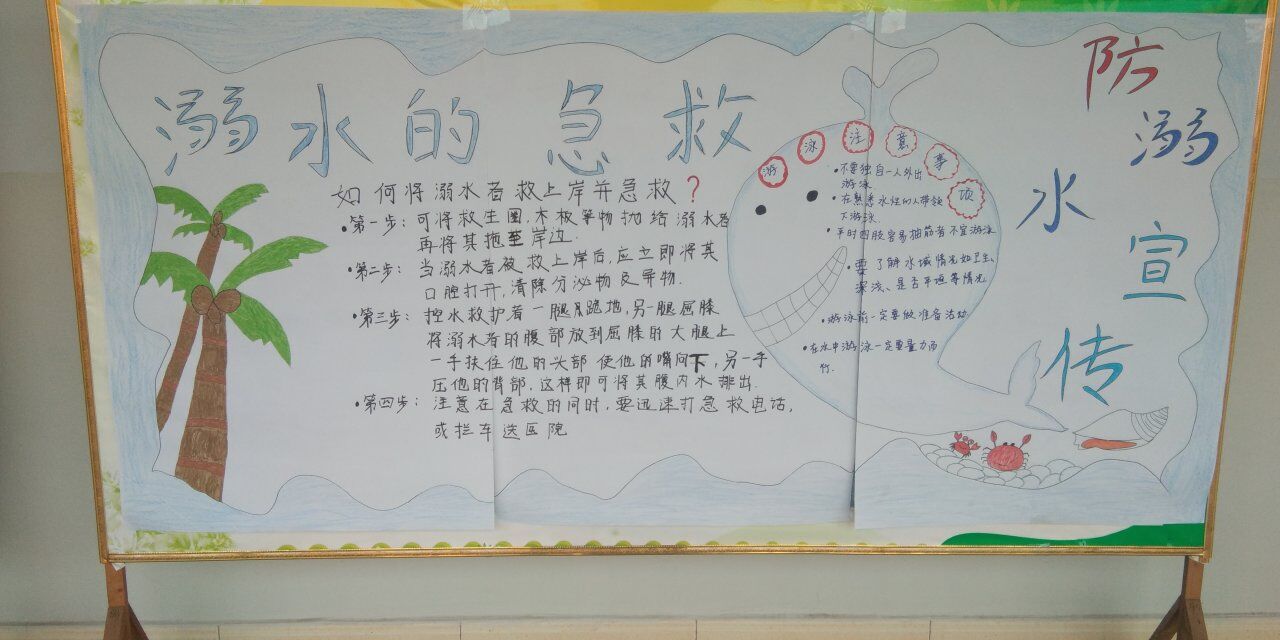 溺水的急救
如何将溺水者救上岸并急救?
•第一步:可将救生圈,木板等物抛给溺水者
再将其拖至岸边.
•第二步:当溺水者被救上岸后,应立即将其
口腔打开,清除分泌物及异物.
•第三步:控水救护者一腿跪地,另一腿屈膝
将溺水者的腹部放到屈膝的大腿上
一手扶住他的头部使他的嘴向下,另一手
压他的背部.这样即可将其腹内水排出.
•第四步:注意在急救的同时,要迅速打急救电话,
或拦车送医院
游泳注意事项
•不要独自一人外出
游泳
•在熟悉水性的人带领
下游泳.
•平时四肢容易抽筋者不宜游泳
•要了解水域情况如卫生、
深浅、是否平坦等情况
•游泳前一定要做准备活动
•在水中游泳一定要量力而
行.
防溺水宣传